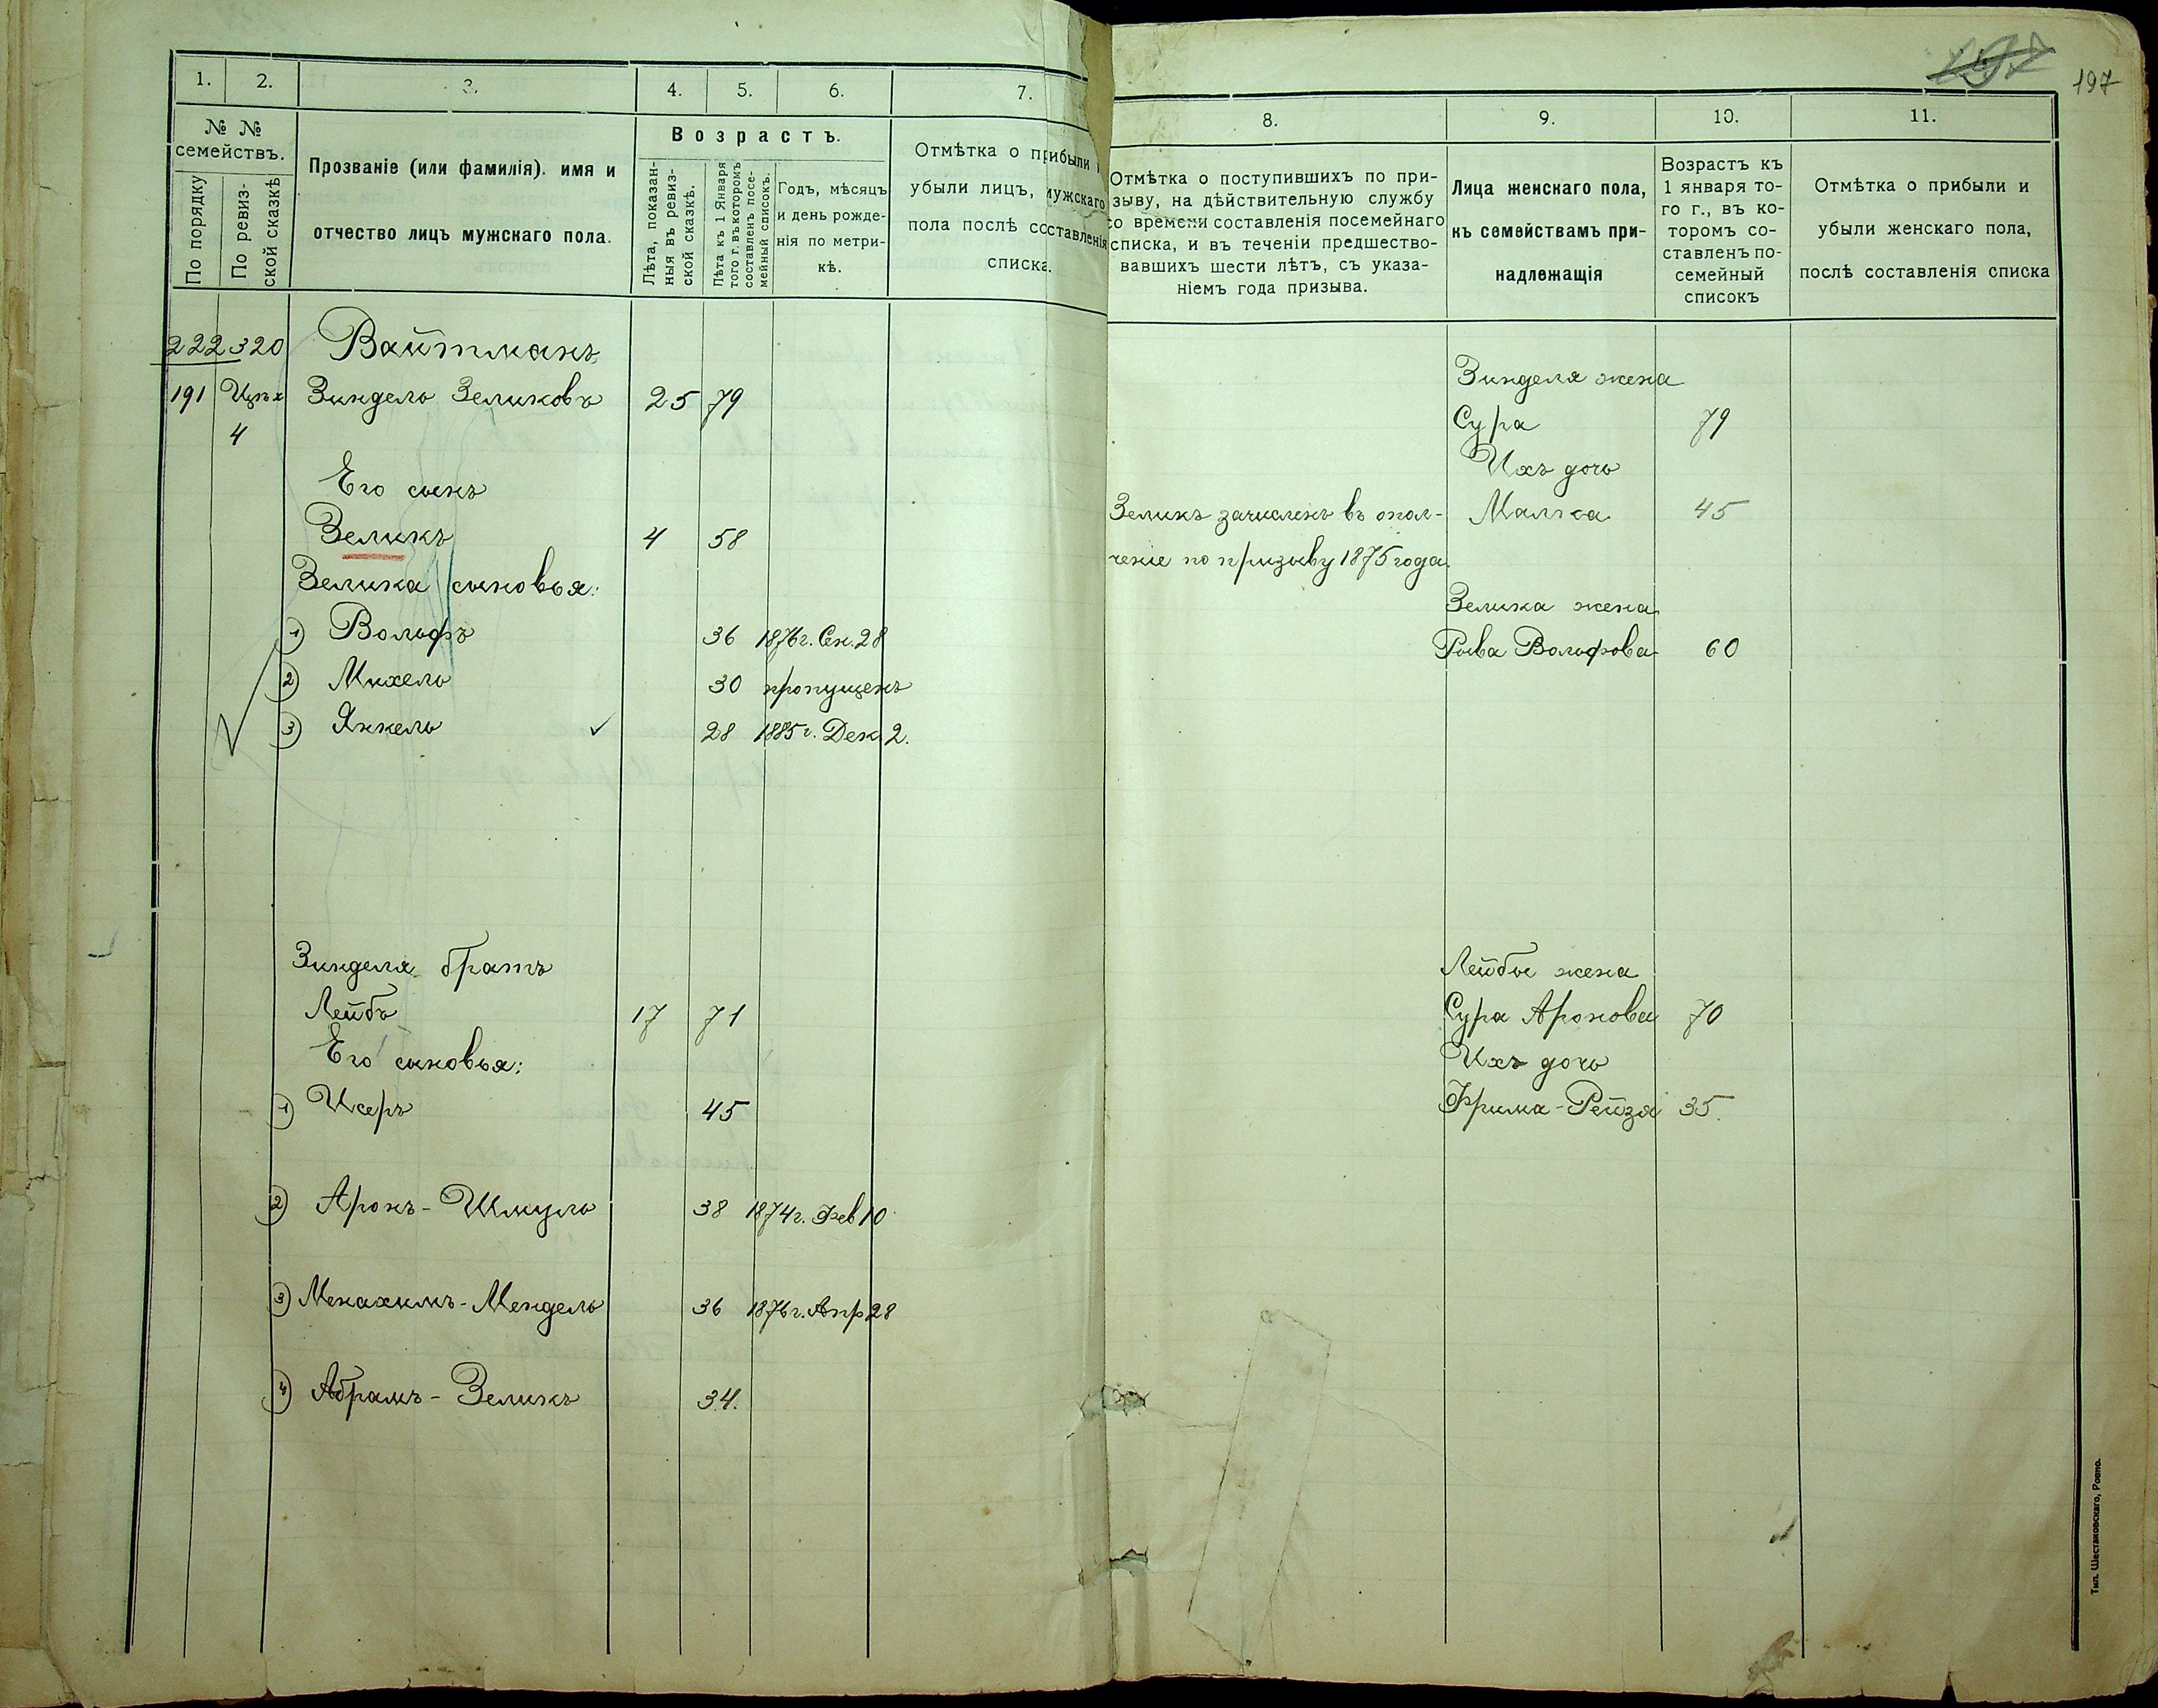 197
1. 2. 3. 4. 5. 6. 7.
№ №
семействъ.
По порядку
По ревиз-
ской сказкѣ
Прозваніе (или фамилія). имя и
отчество лицъ мужскаго пола.
Возрастъ.
Лѣта, показан-
ныя въ ревиз-
ской сказкѣ.
Лѣта къ 1 Января
того г. въ которомъ
составленъ посе-
мейный списокъ.
Годъ, мѣсяцъ
и день рожде-
нія по метри-
кѣ.
Отмѣтка о прибыли и
убыли лицъ, мужскаго
пола послѣ составленія
списка.
222 320 Вайтманъ
191 Цехъ Зиндель Зеликовъ 25 79
4
Его сынъ
Зеликъ 4 58
Зелика сыновья:
1) Вольфъ 36 1876г. Сен. 28
2) Михель 30 пропущенъ
3) Янкель 28 1885г. Дек 2.
Зинделя братъ
Лейбъ 17 71
Его сыновья:
1) Исеръ 45
2) Аронъ-Шмуль 38 1874г. Фев 10
3) Менахимъ-Мендель 36 1876г. Апр 28
4) Абрамъ-Зеликъ 34.
8. 9. 10. 11.
Отмѣтка о поступившихъ по при-
зыву, на дѣйствительную службу
со времени составленія посемейнаго
списка, и въ теченіи предшество-
вавшихъ шести лѣтъ, съ указа-
ніемъ года призыва.
Лица женскаго пола,
къ семействамъ при-
надлежащія
Возрастъ къ
1 января то-
го г., въ ко-
торомъ со-
ставленъ по-
семейный
списокъ
Отмѣтка о прибыли и
убыли женскаго пола,
послѣ составленія списка
Зинделя жена
Сура 79
Ихъ дочь
Зеликъ зачисленъ въ опол- Малка 45
ченіе по призыву 1875 года.
Зелика жена
Рыва Вольфова 60
Лейбы жена
Сура Аронова 70
Ихъ дочь
Фрима-Рейзя 35.
Тип. Шестаковскаго, Ровно.